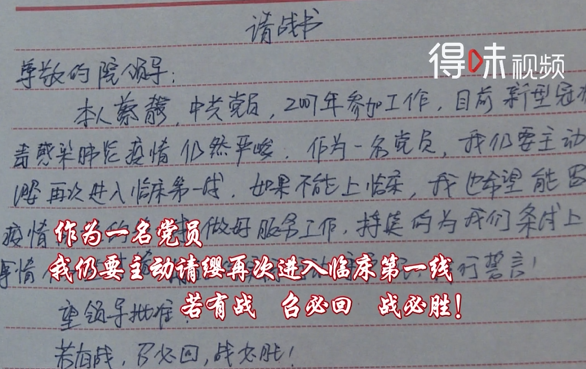 请战书
得味视频
尊敬的院领导：
本人蔡,中共党员,2007年参加工作,目前新型冠
毒感染肺炎疫情仍然严峻,作为一名党员,我仍要主动
缨再次进入临床第一线,如果不能上临床,我也希望能
疫情的做好服务工作,持续的为我们上
作为一名党员
事情行誓言！
我仍要主动请缨再次进入临床第一线
若有战 召必回 战必胜！
望领导批准
若有战,召必回,战必胜！